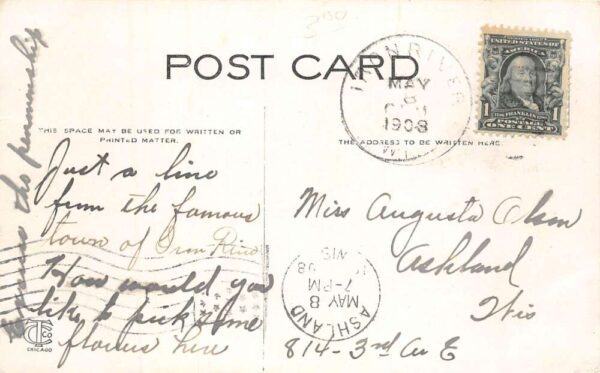 300
POST CARD
IRON RIVER
MAY
8
1908
WIS.
UNITED STATES OF
AMERICA
1 1
FRANKLIN
POSTAGE
ONE CENT
THIS SPACE MAY BE USED FOR WRITTEN OR
PRINTED MATTER.
THE ADDRESS TO BE WRITTEN HERE.
Just a line
from the famous
town of Iron River
How would you
like to pick some
flowers here
the penmanship
Miss Augusta Olson
Ashland
Wis
814-3rd Av E
ASHLAND
MAY 8
7-PM
08
WIS
CHICAGO